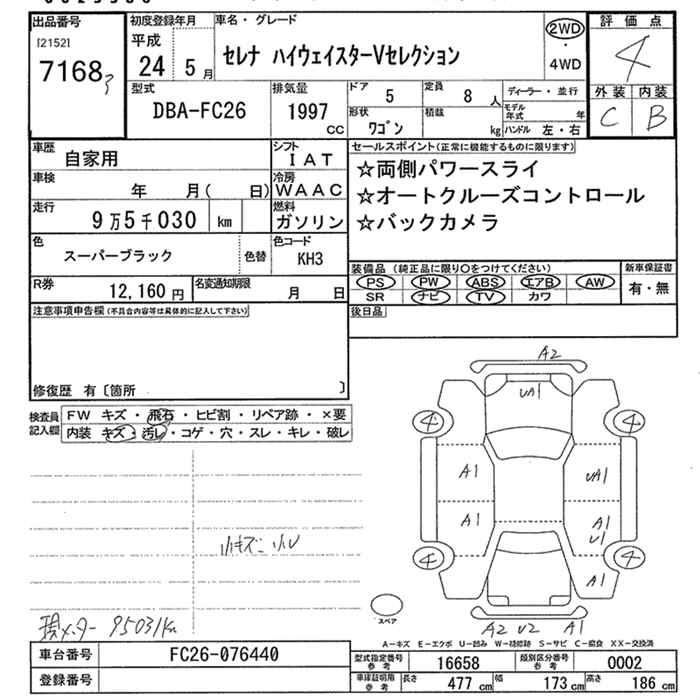 出品番号
[2152]
71683
初度登録年月
平成
24 5月
車名・グレード
セレナ ハイウェイスターVセレクション
2WD
・
4WD
評価点
4
外装 内装
C B
型式
DBA-FC26
排気量
1997
CC
ドア
5
定員
8人
形状
ワゴン
積載
kg
ディーラー・並行
モデル年式 年
ハンドル 左・右
車歴
自家用
シフト
IAT
車検
年 月( 日)
冷房
WAAC
走行
9万5千030 km
燃料
ガソリン
色
スーパーブラック
色替
色コード
KH3
R券
12,160円
名変通知期限
月 日
セールスポイント(正常に機能するものに限ります)
☆両側パワースライ
☆オートクルーズコントロール
☆バックカメラ
装備品(純正品に限り○をつけてください)
PS PW ABS エアB AW
SR ナビ TV カワ
新車保証書
有・無
後日品
注意事項申告欄(不具合内容等は具体的に記入して下さい)
修復歴 有〔箇所 〕
検査員
記入欄
FW キズ・飛石・ヒビ割・リペア跡・×要
内装 キズ・汚レ・コゲ・穴・スレ・キレ・破レ
小キズ、小U
現メーター 95031km
A2
UA1
4 4
A1 UA1
A1 A1
U1
4 4
A1
スペア
A2 U2 A1
A-キズ E-エクボ U-凹み W-補修跡 S-サビ C-腐食 XX-交換済
車台番号
FC26-076440
登録番号
型式指定番号
参考
16658
類別区分番号
参考
0002
車庫証明用
参考
長さ 477cm 幅 173cm 高さ 186cm